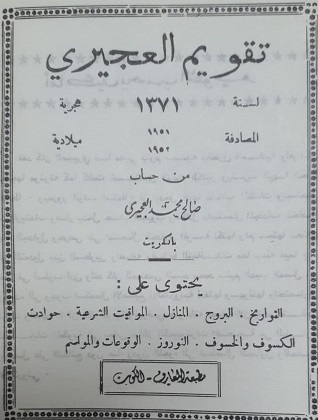 تقويم العجيري
لسنة ١٣٧١ هجرية
المصادفة ١٩٥١ ١٩٥٢ ميلادية
من حساب
صالح محمد العجيري
بالكويت
يحتوى على :
التواريخ . البروج . المنازل . المواقيت الشرعية . حوادث
الكسوف والخسوف . النوروز . الوقوعات والمواسم
مطبعة المعارف - الكويت